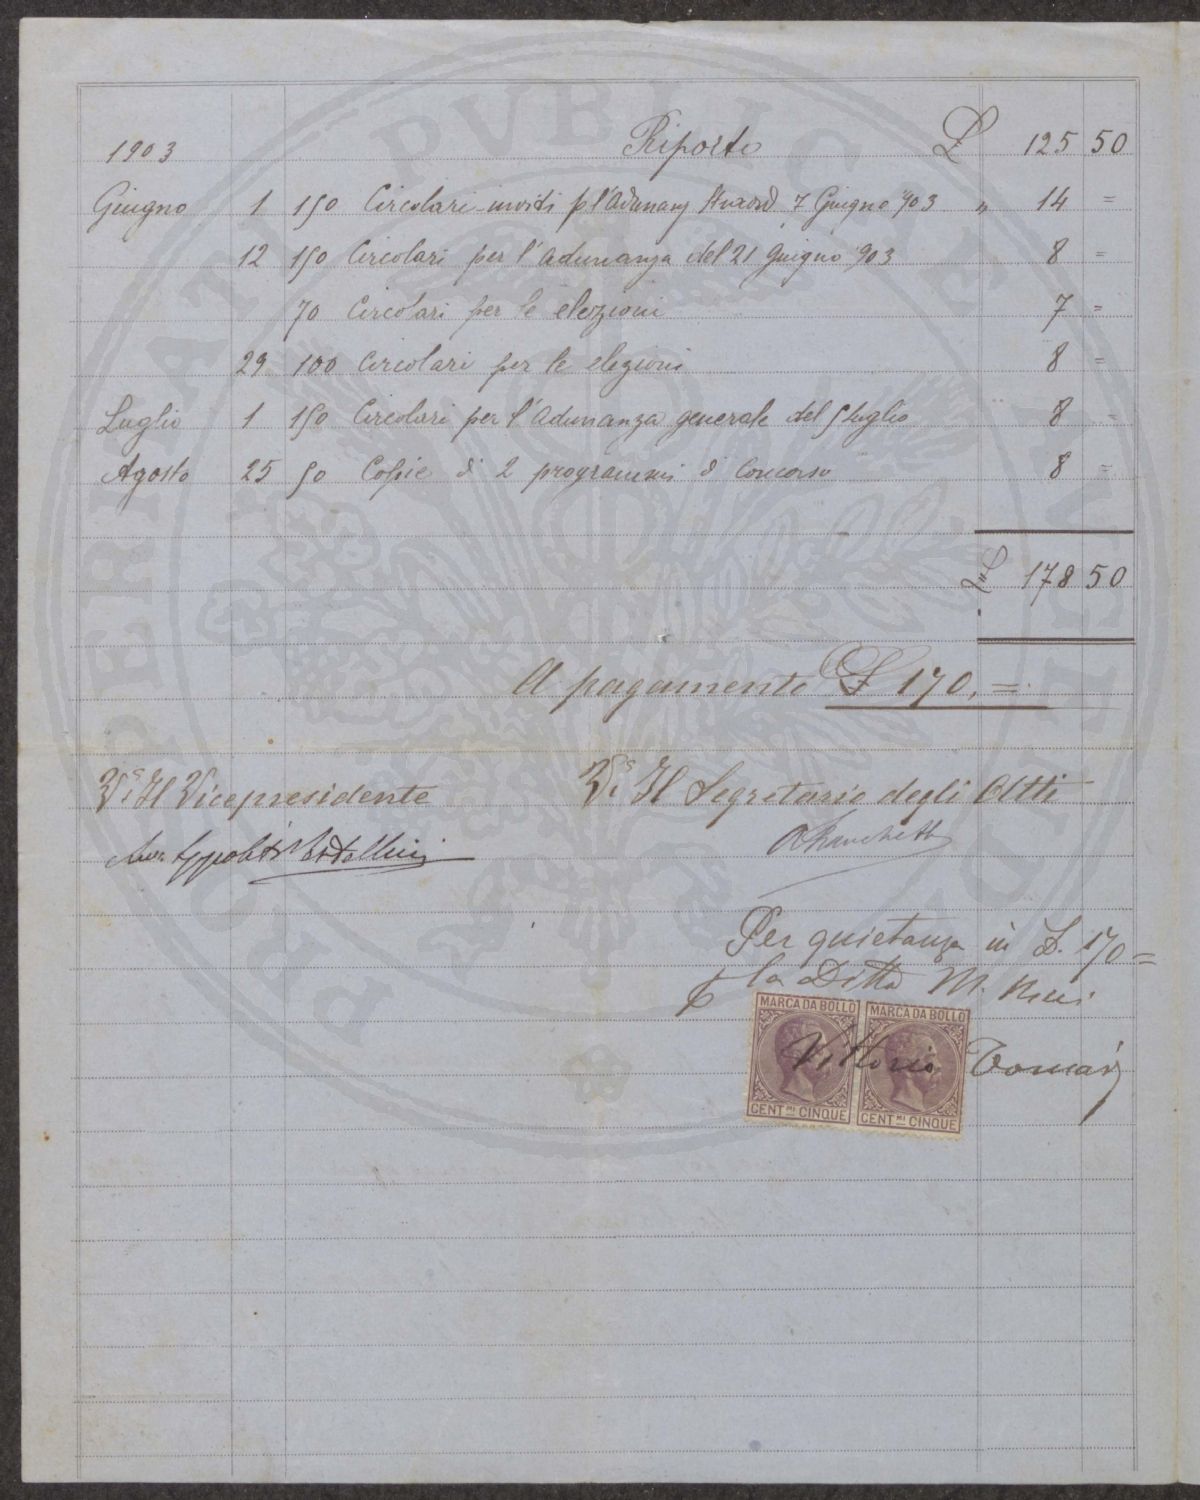 1903 Riporto £ 125 50
Giugno 1 150 Circolari-inviti p l'Adunanz 7 Giugno 903 " 14 =
12 150 Circolari per l'Adunanza del 21 Giugno 903 8 =
70 Circolari per le elezioni 7 =
29 100 Circolari per le elezioni 8 =
Luglio 1 150 Circolari per l'Adunanza generale del 5 luglio 8 =
Agosto 25 50 Copie di 2 programmi di Concorso 8 =
178 50
A pagamento £ 170, =
V.° Il Vicepresidente V.° Il Segretario degli Atti
Per quietanza in £. 170 =
p la Ditta M. Ricci
MARCA DA BOLLO MARCA DA BOLLO
Vittorio
CENT.MI CINQUE CENT.MI CINQUE